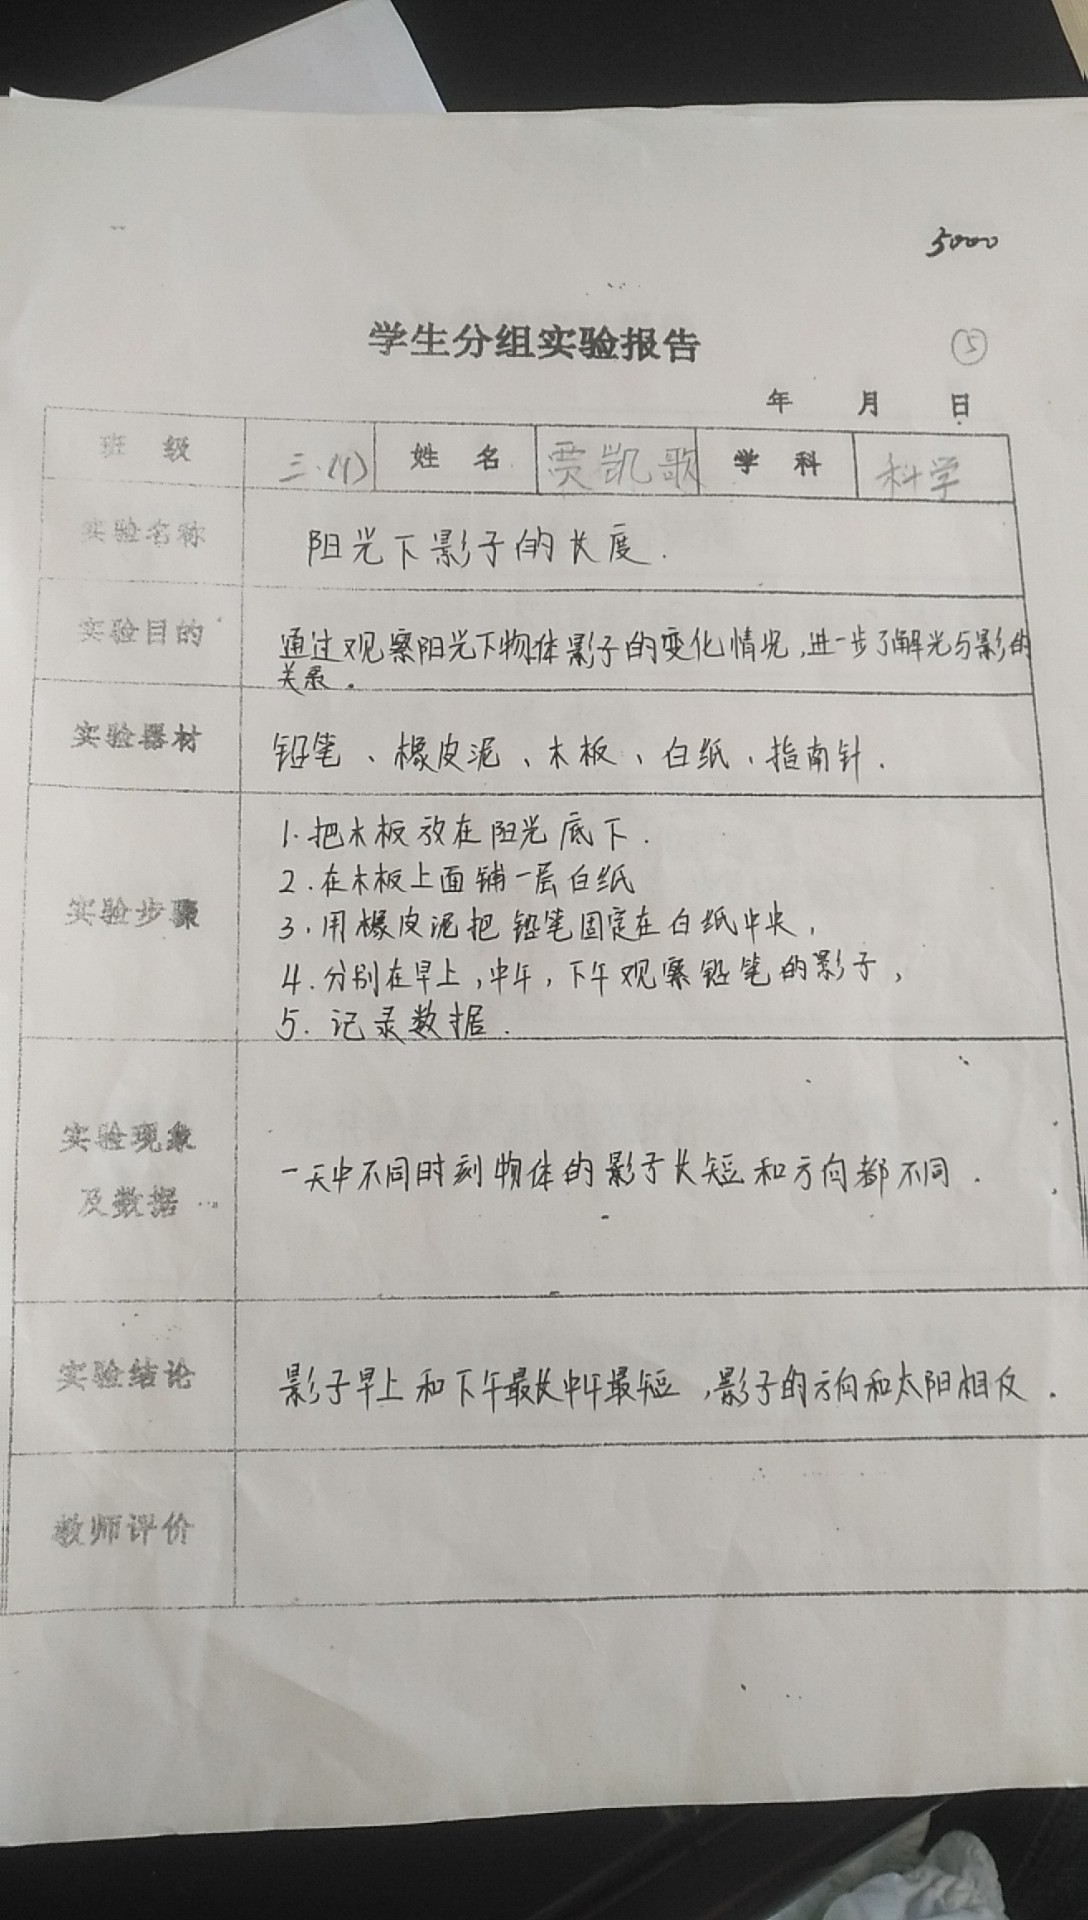 5000
学生分组实验报告
⑤
年 月 日
班 级 三.(1) 姓 名 贾凯歌 学 科 科学
实验名称 阳光下影子的长度.
实验目的 通过观察阳光下物体影子的变化情况,进一步了解光与影的
关系.
实验器材 铅笔、橡皮泥、木板、白纸、指南针.
1.把木板放在阳光底下.
2.在木板上面铺一层白纸
实验步骤 3.用橡皮泥把铅笔固定在白纸中央,
4.分别在早上,中午,下午观察铅笔的影子,
5.记录数据.
实验现象
及数据 一天中不同时刻物体的影子长短和方向都不同.
实验结论 影子早上和下午最长中午最短,影子的方向和太阳相反.
教师评价